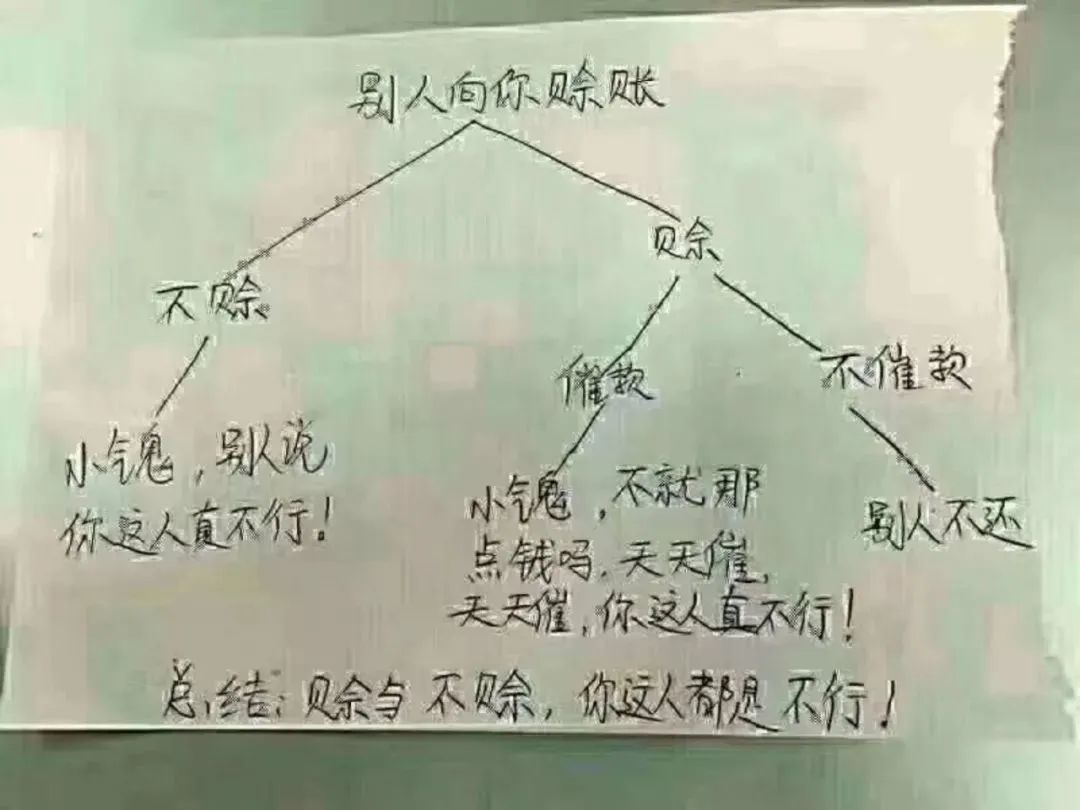 别人向你赊账
赊
不赊
催款
不催款
小气鬼，别人说
你这人真不行！
小气鬼，不就那
点钱吗，天天催，
天天催，你这人真不行！
别人不还
总结：赊与不赊，你这人都是不行！